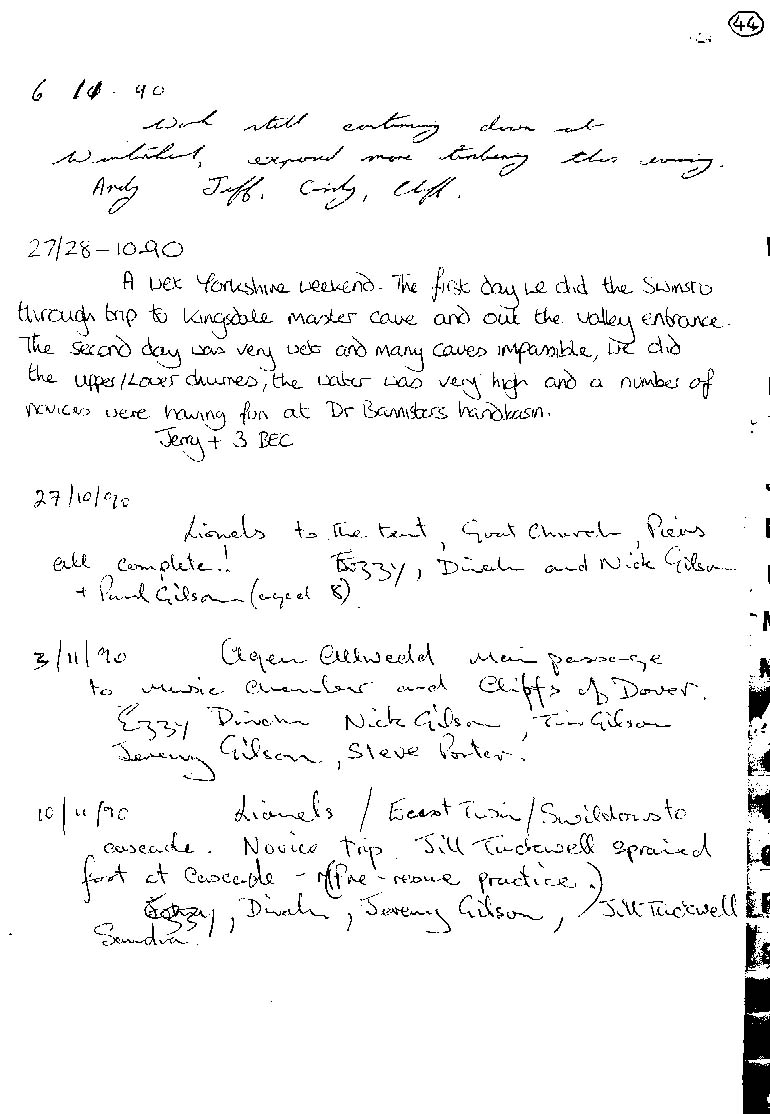 44
6 10.90
Work still continuing down at
expand more timbering this evening.
Andy Jeff, Cindy, Cliff.
27/28-10-90
A wet Yorkshire weekend. The first day we did the Swinsto
through trip to Kingsdale master cave and out the valley entrance.
The second day was very wet and many caves impassible, we did
the upper/Lower churnes, the water was very high and a number of
novices were having fun at Dr Bannisters handbasin.
Jerry + 3 BEC
27/10/90
Lionels to the tent, Goat Church, Pierres
all complete!! Ezzy, Dinah and Nick Gilson
+ Paul Gilson (aged 8)
3/11/90 Agen Allwedd Main passage
to music chamber and Cliffs of Dover.
Ezzy Dinah Nick Gilson, Tim Gilson
Jeremy Gilson, Steve Porter!
10/11/90 Lionels / East Twin / Swildons to
cascade. Novice trip. Jill Tuckwell sprained
foot at Cascade - (Pre-rescue practice.)
Ezzy, Dinah, Jeremy Gilson, Jill Tuckwell
Sandra.